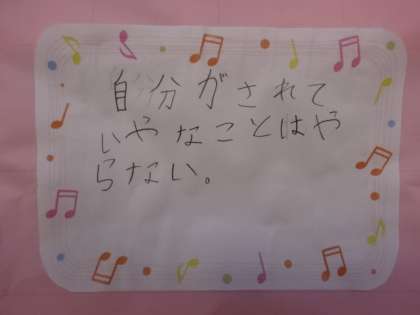 自分がされて
いやなことはや
らない。